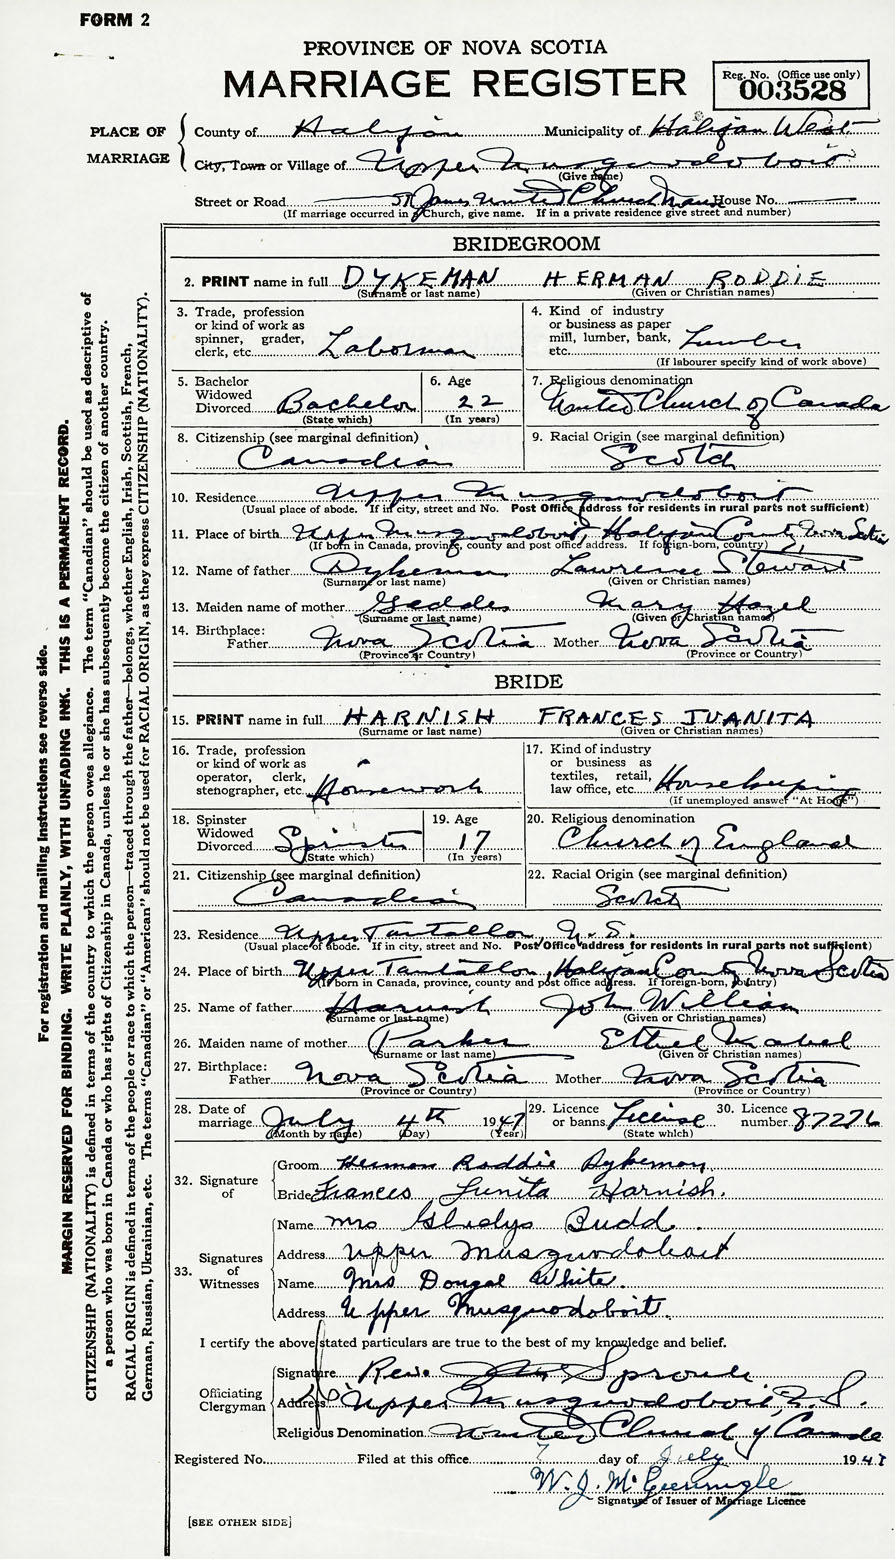 FORM 2
PROVINCE OF NOVA SCOTIA
MARRIAGE REGISTER
Reg. No. (Office use only)
003528
PLACE OF MARRIAGE
County of Halifax Municipality of Halifax West
City, Town or Village of Upper Musquodoboit
(Give name)
Street or Road St James United Church Manse House No.
(If marriage occurred in a Church, give name. If in a private residence give street and number)
BRIDEGROOM
2. PRINT name in full DYKEMAN HERMAN RODDIE
(Surname or last name) (Given or Christian names)
3. Trade, profession or kind of work as spinner, grader, clerk, etc. Laborman
4. Kind of industry or business as paper mill, lumber, bank, etc. Lumber
(If labourer specify kind of work above)
5. Bachelor Widowed Divorced Bachelor
(State which)
6. Age 22
(In years)
7. Religious denomination
United Church of Canada
8. Citizenship (see marginal definition)
Canadian
9. Racial Origin (see marginal definition)
Scotch
10. Residence Upper Musquodoboit
(Usual place of abode. If in city, street and No. Post Office address for residents in rural parts not sufficient)
11. Place of birth Upper Musquodoboit, Halifax County, Nova Scotia
(If born in Canada, province, county and post office address. If foreign-born, country)
12. Name of father Dykeman Lawrence Stewart
(Surname or last name) (Given or Christian names)
13. Maiden name of mother Geddes Mary Hazel
(Surname or last name) (Given or Christian names)
14. Birthplace: Father Nova Scotia Mother Nova Scotia
(Province or Country) (Province or Country)
BRIDE
15. PRINT name in full HARNISH FRANCES JUANITA
(Surname or last name) (Given or Christian names)
16. Trade, profession or kind of work as operator, clerk, stenographer, etc. Housework
17. Kind of industry or business as textiles, retail, law office, etc. Housekeeping
(If unemployed answer "At Home")
18. Spinster Widowed Divorced Spinster
(State which)
19. Age 17
(In years)
20. Religious denomination
Church of England
21. Citizenship (see marginal definition)
Canadian
22. Racial Origin (see marginal definition)
Scotch
23. Residence Upper Tantallon, N.S.
(Usual place of abode. If in city, street and No. Post Office address for residents in rural parts not sufficient)
24. Place of birth Upper Tantallon, Halifax County, Nova Scotia
(If born in Canada, province, county and post office address. If foreign-born, country)
25. Name of father Harnish John William
(Surname or last name) (Given or Christian names)
26. Maiden name of mother Parker Ethel Mabel
(Surname or last name) (Given or Christian names)
27. Birthplace: Father Nova Scotia Mother Nova Scotia
(Province or Country) (Province or Country)
28. Date of marriage July 4th 1947
(Month by name) (Day) (Year)
29. Licence or banns License
(State which)
30. Licence number 87276
32. Signature of
Groom Herman Roddie Dykeman
Bride Frances Junita Harnish.
33. Signatures of Witnesses
Name Mrs Gladys Budd
Address Upper Musquodoboit
Name Mrs Dougal White.
Address Upper Musquodoboit.
I certify the above stated particulars are true to the best of my knowledge and belief.
Officiating Clergyman
Signature Rev. Sproule
Address Upper Musquodoboit, N.S.
Religious Denomination United Church of Canada
Registered No. Filed at this office 7 day of July 1947
W. J. 
Signature of Issuer of Marriage Licence
[SEE OTHER SIDE]
For registration and mailing instructions see reverse side.
MARGIN RESERVED FOR BINDING. WRITE PLAINLY, WITH UNFADING INK. THIS IS A PERMANENT RECORD.
CITIZENSHIP (NATIONALITY) is defined in terms of the country to which the person owes allegiance. The term "Canadian" should be used as descriptive of
a person who was born in Canada or who has rights of Citizenship in Canada, unless he or she has subsequently become the citizen of another country.
RACIAL ORIGIN is defined in terms of the people or race to which the person—traced through the father—belongs, whether English, Irish, Scottish, French,
German, Russian, Ukrainian, etc. The terms "Canadian" or "American" should not be used for RACIAL ORIGIN, as they express CITIZENSHIP (NATIONALITY).